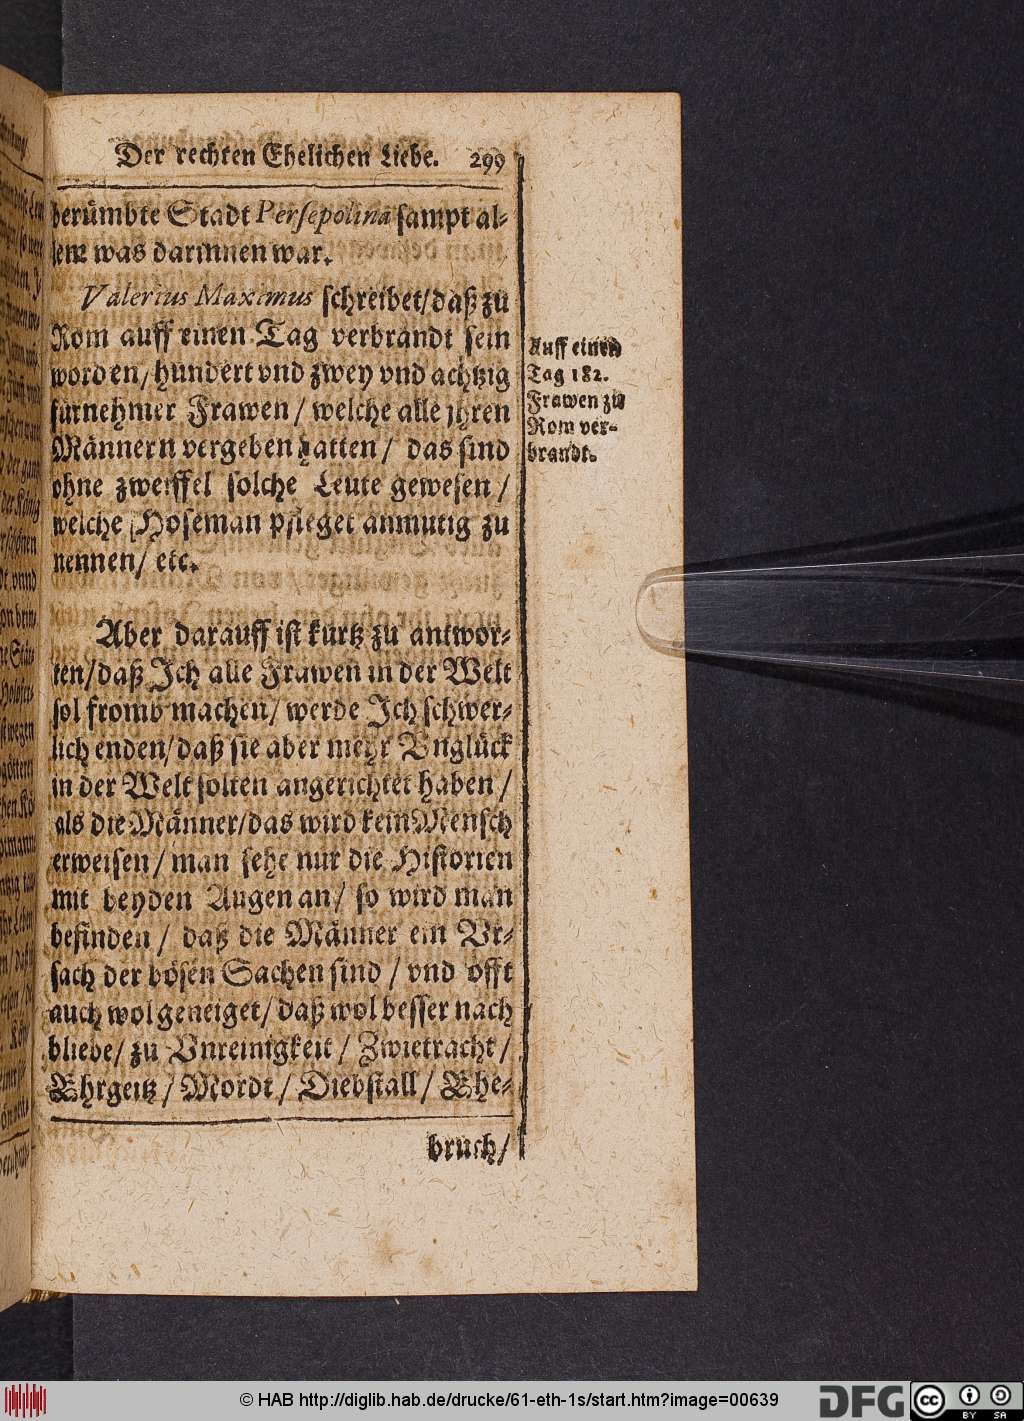 Der rechten Ehelichen Liebe. 299
berümbte Stadt Persepolina sampt al-
lem was darinnen war.
Valerius Maximus schreibet/daß zu
Rom auff einen Tag verbrandt sein
worden/hundert vnd zwey vnd achtzig
fürnehmer Frawen/welche alle jhren
Männern vergeben hatten/ das sind
ohne zweiffel solche Leute gewesen/
welche Hoseman pfleget anmutig zu
nennen/ etc.
Auff einen
Tag 182.
Frawen zu
Rom ver-
brandt.
Aber darauff ist kurtz zu antwor-
ten/daß Ich alle Frawen in der Welt
sol fromb machen/werde Ich schwer-
lich enden/daß sie aber mehr Vnglück
in der Welt solten angerichtet haben/
als die Männer/das wird kein Mensch
erweisen/man sehe nur die Historien
mit beyden Augen an/ so wird man
befinden/ daß die Männer ein Vr-
sach der bösen Sachen sind/vnd offt
auch wol geneiget/daß wol besser nach
bliebe/zu Vnreinigkeit/Zwietracht/
Ehrgeitz/Mordt/Diebstall/Ehe-
bruch/
© HAB http://diglib.hab.de/drucke/61-eth-1s/start.htm?image=00639
DFG
cc
BY SA